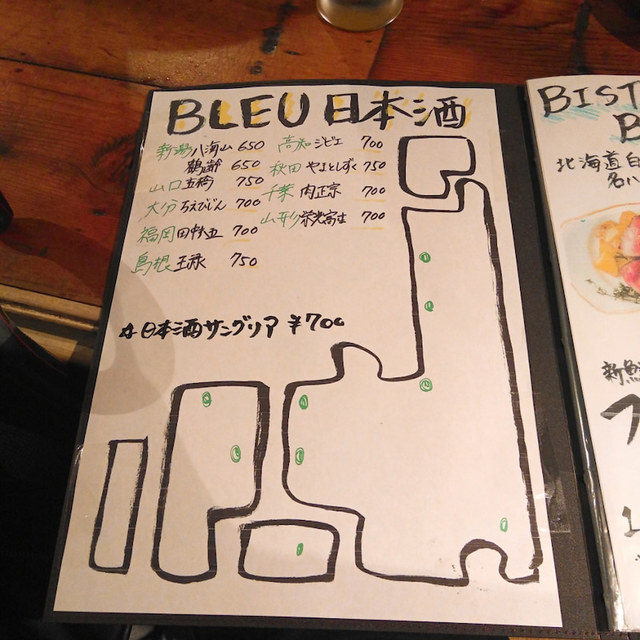 BLEU 日本酒
新潟 八海山 650
鶴齢 650
山口 五橋 750
大分 ちえびじん 700
福岡 田中六五 700
島根 王祿 750
高知 ジビエ 700
秋田 やまとしずく 750
千葉 肉正宗 700
山形 栄光冨士 700
日本酒サングリア ¥700
BIST
B
北海道
新鮮